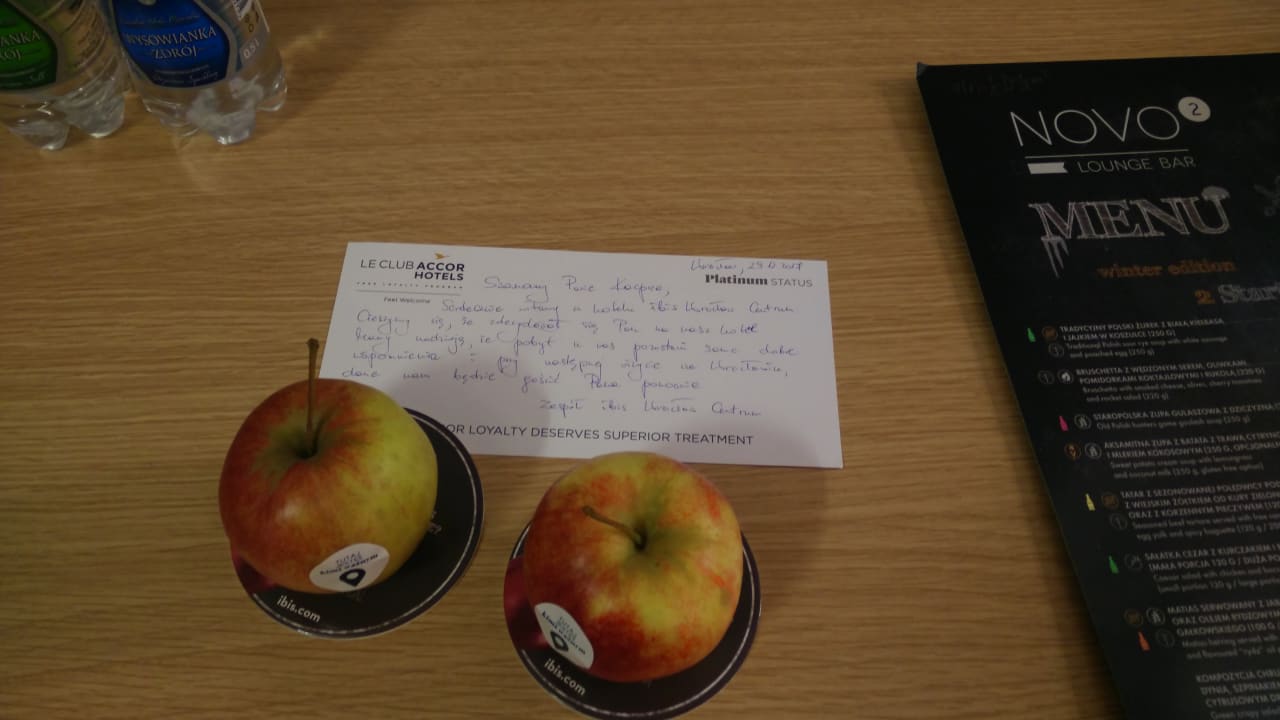 WYSOWIANKA
ZDRÓJ
0,5 l
LE CLUB ACCOR
HOTELS
Feel Welcome
Platinum STATUS
Szanowny Panie
Serdecznie witamy w hotelu ibis Wrocław Centrum
Cieszymy się, że zdecydował się Pan na nasz hotel
że pobyt u nas
wspomnienia i przy następnej wizycie we Wrocławiu,
dane nam będzie gościć Pana ponownie
Zespół ibis Wrocław Centrum
OR LOYALTY DESERVES SUPERIOR TREATMENT
ibis.com
ibis.com
NOVO2
LOUNGE BAR
MENU
winter edition
2 Star
TRADYCYJNY POLSKI ŻUREK Z BIAŁĄ KIEŁBASĄ
I JAJKIEM W KOSZULCE (250 G)
Traditional Polish sour rye soup with white sausage
and poached egg (250 g)
BRUSCHETTA Z WĘDZONYM SEREM, OLIWKAMI,
POMIDORKAMI KOKTAJLOWYMI I RUKOLĄ (220 G)
Bruschetta with smoked cheese, olives, cherry tomatoes
and rocket salad (220 g)
STAROPOLSKA ZUPA GULASZOWA Z DZICZYZNĄ
Old Polish hunters game goulash soup (250 g)
AKSAMITNA ZUPA Z BATATA Z TRAWĄ CYTRYN
I MLEKIEM KOKOSOWYM (250 G, OPCJONAL
Sweet potato cream soup with lemongrass
and coconut milk (250 g, gluten free option)
TATAR Z SEZONOWANEJ POLĘDWICY
Z WIEJSKIM ŻÓŁTKIEM OD KURY ZIELON
ORAZ Z KORZENNYM PIECZYWEM
Seasoned beef tartare served with free
egg yolk and spicy baguette
SAŁATKA CEZAR Z KURCZAKIEM I
(MAŁA PORCJA 130 G / DUŻA PO
Caesar salad with chicken and
(small portion 130 g / large portion
MATIAS SERWOWANY Z
ORAZ OLEJEM RYDZOWYM
GAŁKOWSKIEGO (100 G
Matias herring served with
and flavoured "rydz" oil
KOMPOZYCJA
DYNIA, SZPINAKI
CYTRUSOWYM D
Green crispy salad